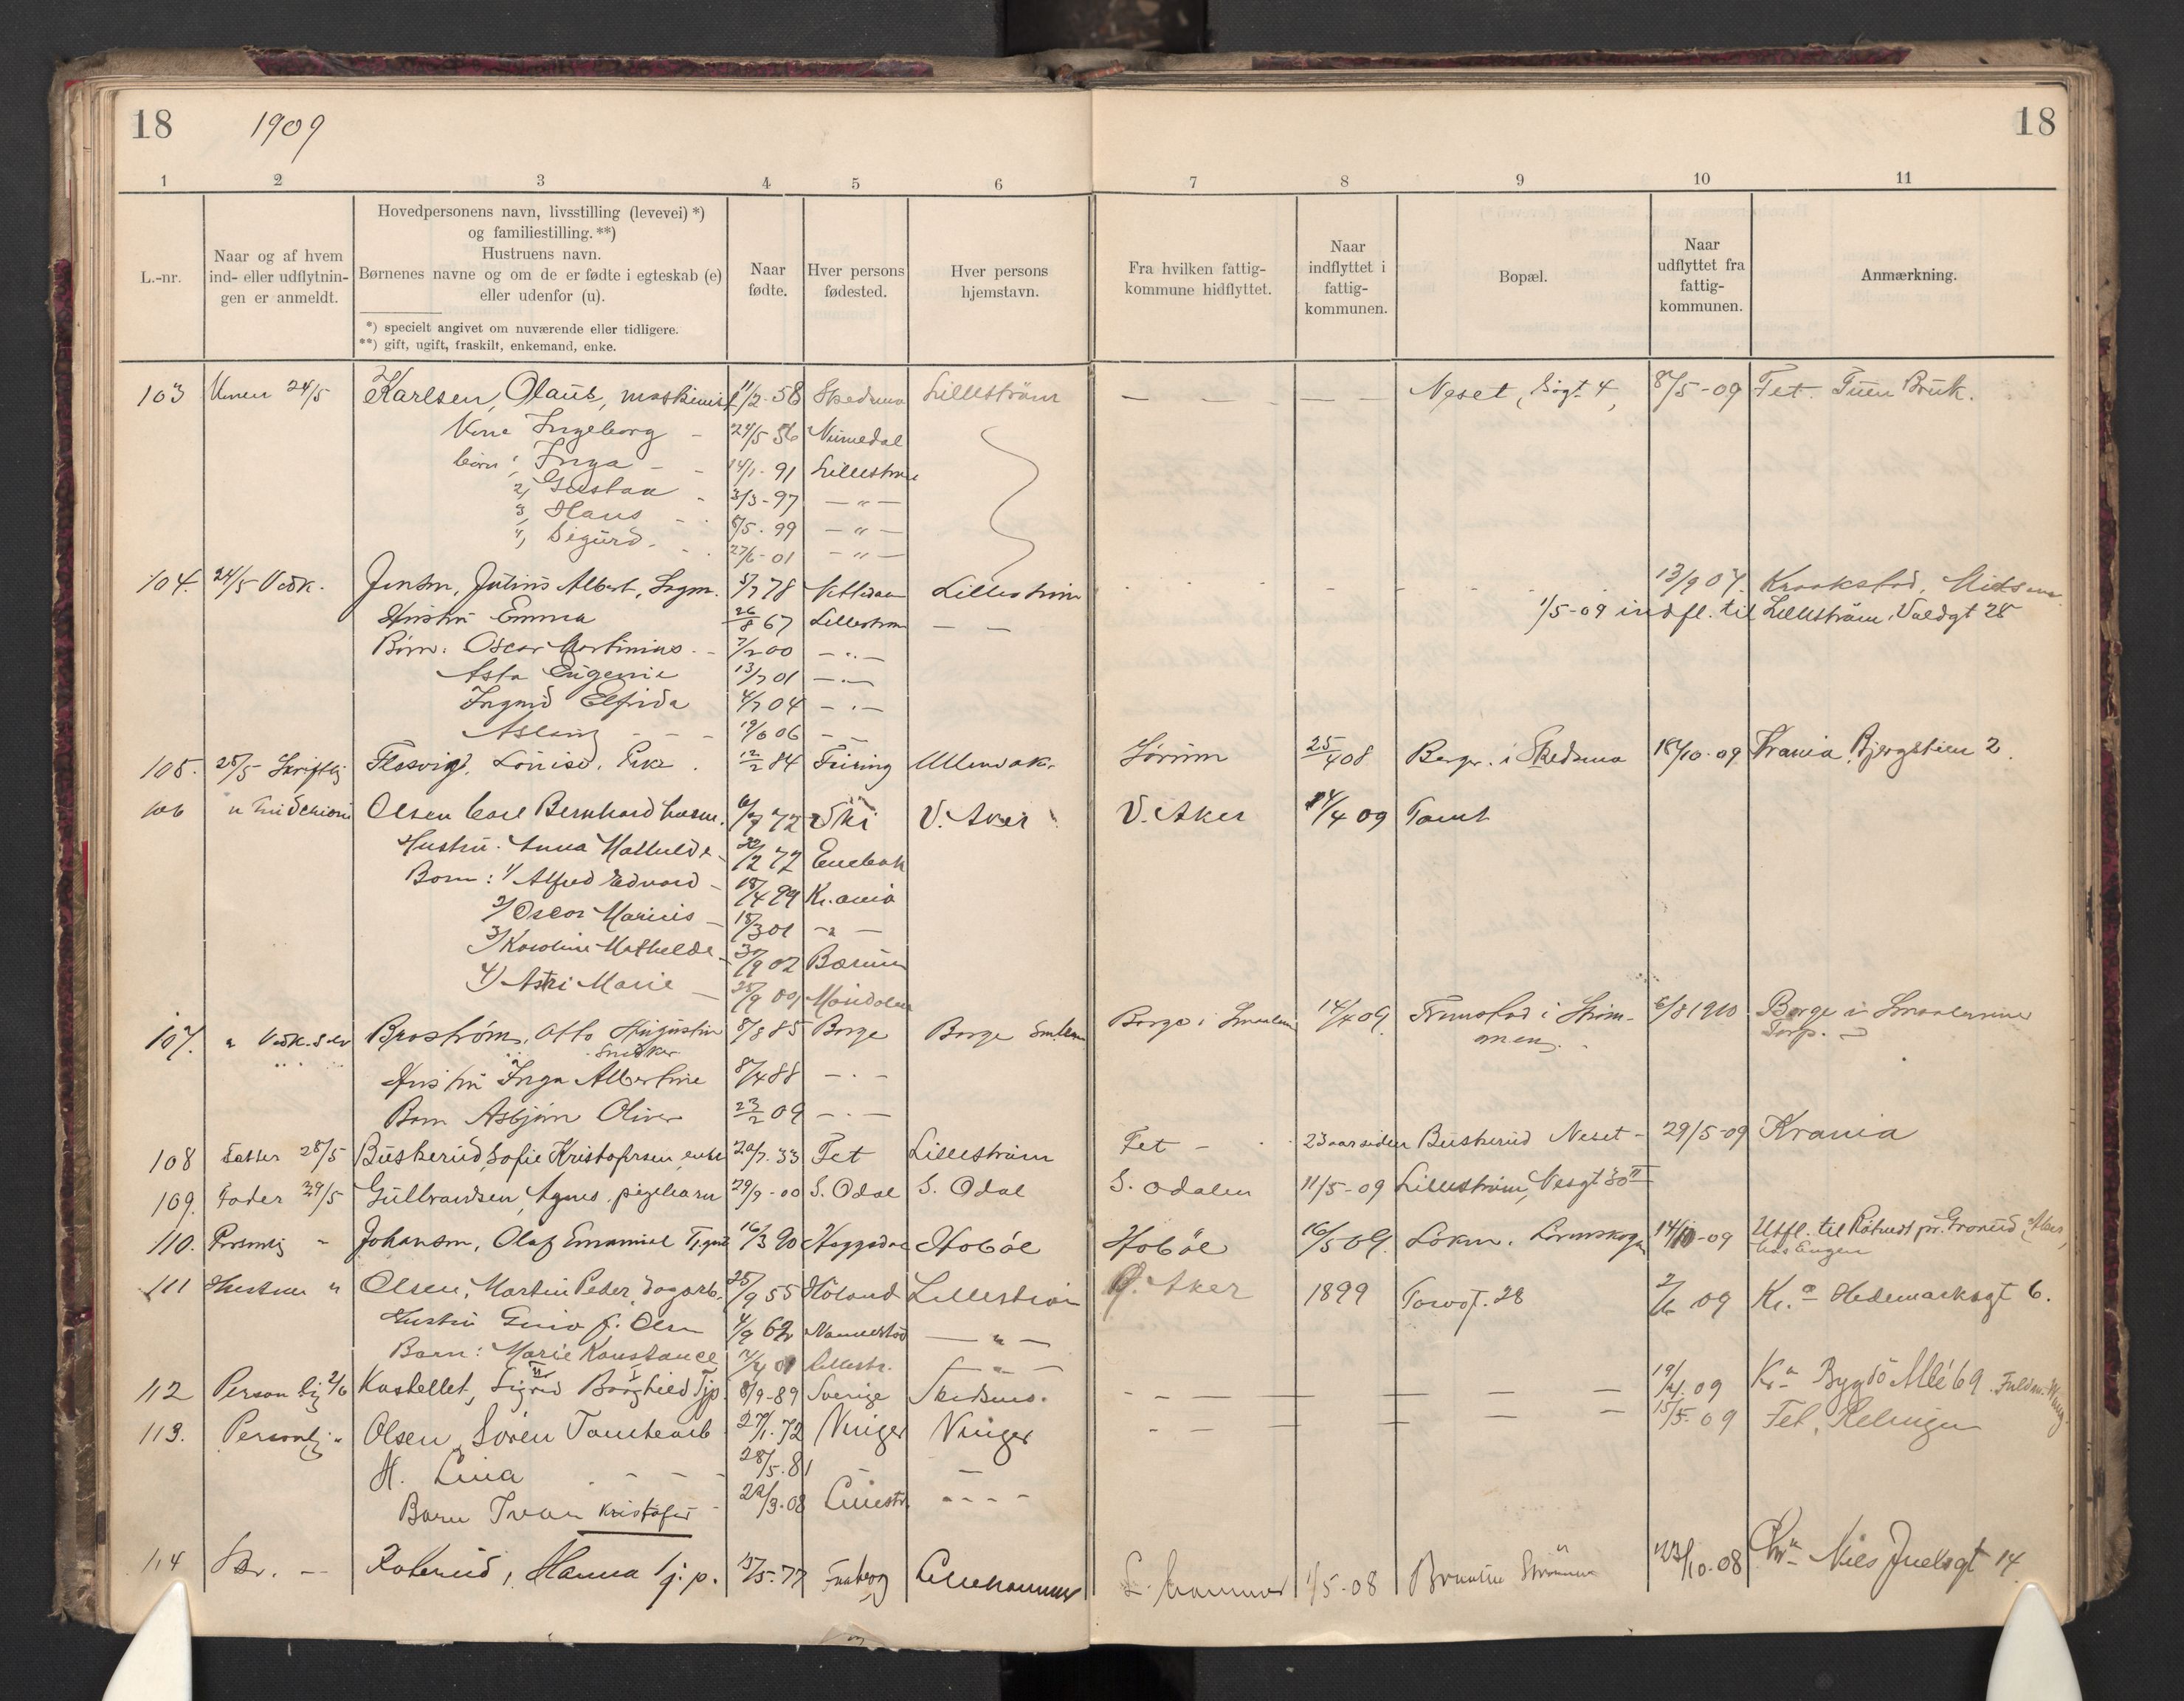 18 1909 18
1 2 3 4 5 6 7 8 9 10 11
L.-nr.
Naar og af hvem
ind- eller udflytnin-
gen er anmeldt.
Hovedpersonens navn, livsstilling (levevei) *)
og familiestilling. **)
Hustruens navn.
Børnenes navne og om de er fødte i egteskab (e)
eller udenfor (u).
*) specielt angivet om nuværende eller tidligere.
**) gift, ugift, fraskilt, enkemand, enke.
Naar
fødte.
Hver persons
fødested.
Hver persons
hjemstavn.
Fra hvilken fattig-
kommune hidflyttet.
Naar
indflyttet i
fattig-
kommunen.
Bopæl.
Naar
udflyttet fra
fattig-
kommunen.
Anmærkning.
103 24/5 Karlsen, Olaus, maskinist 11/2-58 Skedsmo Lillestrøm — — — — — Neset, 8/5-09 Fet. Tuen Bruk.
Kone Ingeborg – 24/5 56
børn: Inga – – 14/1-91 Lillestrøm
2, Gustav - 3/3-97 — " —
3, Hans - 8/5-99 — " —
Sigurd - 27/6-01 — " —
104. 24/5 Vedk. Jensen, Julius Albert, 5/7 78 Lillestrøm 13/9 07 Kraakstad,
1/5-09 indfl. til Lillestrøm, Voldgt 28
Hustru Emma 26/8 67 Lillestrøm — —
Børn: Oscar Martinius 7/2 00 — " —
Asta Eugenie 13/7 01 — " —
Ingrid Elfrida 4/7 04 — " —
19/6 06 — —
105. 25/5 Skriftlig Louise. 12/2 84 Sørum 25/4 08 i Skedsmo 18/10-09 Krania Bjergstien 2.
106 " Olsen Carl Bernhard 72 Ski V. Aker V. Aker 14/4 09 Tomt
Hustru. Anna Mathilde 72 Enebak
Børn: 1/ Alfred Edvard – 18/4 99 Kr.ania
2/ Oscar Marius – 18/3 01 — " —
3/ Karoline Mathilde 30/9 02 Bærum
4/ Astri Marie — 25/9
107. " Vedk. selv Brostrøm, Otto Augustin 8/8 85 Borge Borge Borge i Smaalen 14/4 09. i Strøm- 6/8 1910 Borge i Smaalenene
Snedker men Torp.
Hustru Inga Albertine 8/4 88 — " —
Barn Asbjørn Oliver 23/2 09 — " —
108 28/5 Buskerud, Sofie Kristofersen enke 33 Fet Lillestrøm Fet - 23 aar siden Buskerud Neset - 29/5-09 Krania
109. Fader 29/5 Gulbrandsen, Agnes. pigebarn 29/9-00 S. Odal S. Odal S. Odalen 11/5-09 Lillestrøm, 30 II
110. Personlig " Johansen, Olaf Emanuel 16/3 90 Hobøl Hobøl 16/5 09. Løken. Lørenskogen 14/10-09 Utfl. til pr. Grorud
hos Engen
111 Hustruen " Olsen, Martin Peder, dagarb. 25/9 55 Høland Lillestrøm Ø. Aker 1899 Torvgt. 28 09 Kr.a Hedemarksgt 6.
Hustru 4/9 62 Nannestad — " —
Barn: Marie Konstance Lillestr. — " —
112 Personlig 2/6 Kastellet, Sigrid Borghild Tjp. 8/9-89 Sverige Skedsmo. - — — — — — — 19/4.09 Kra Bygdø Allé 69.
113. Personlig " Olsen Søren Tomtearb 27/1.72 Vinger Vinger - — — — — — 15/5.09 Fet,
H. Lina - - - 28/5.81 — —
Barn Ivar Kristofer - 22/3.08 Lillestr. - - - -
114 Do. — Hanna Tj.p. 15/5-77 Faaberg Lillehammer L. hammer 1/5-08 Strømmen 23/10-08 Kra Niels Juelsgt 14.